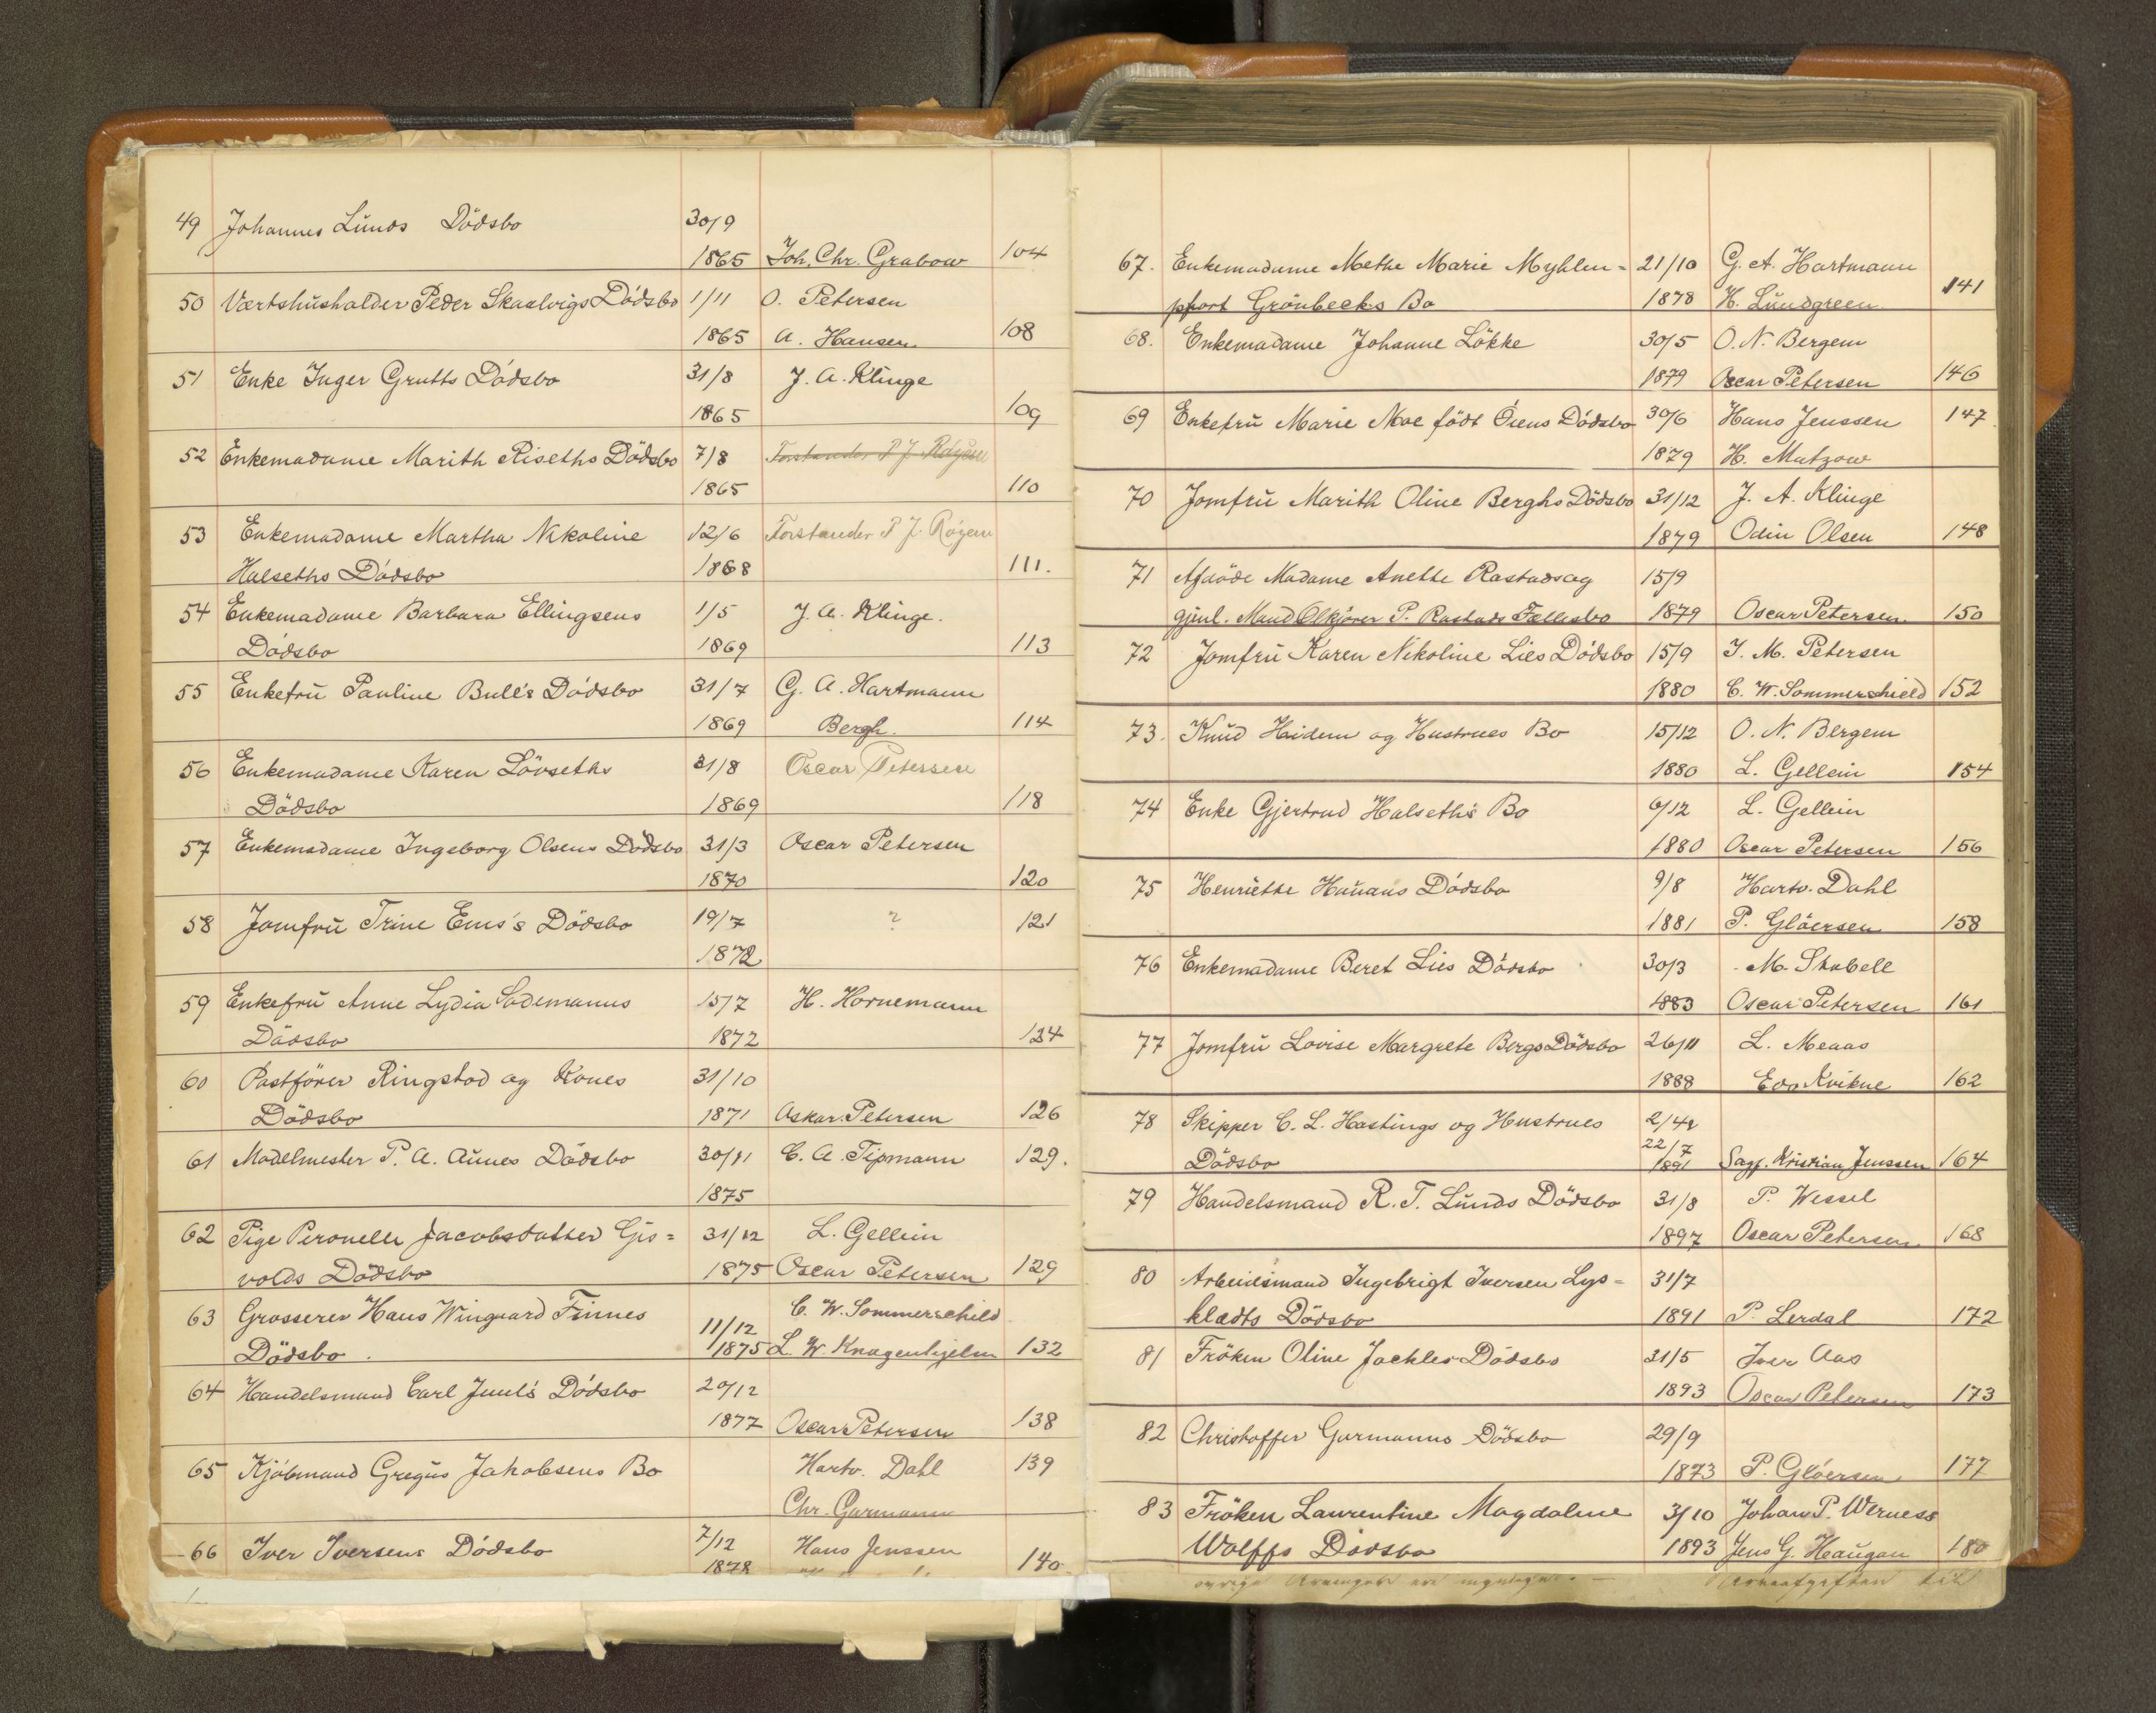 49 Johannes Lunds Dödsbo 30/9
1865 Joh. Chr. Grabow 104
50 Værtshusholder Peder Skaalvigs Dödsbo 1/11 O. Petersen
1865 A. Hansen 108
51 Enke Inger Grutts Dödsbo 31/8 J. A. Klinge
1865 109
52 Enkemadame Marith Riseths Dödsbo 7/8 Forstander P J Röyem
1865 110
53 Enkemadame Martha Nikoline 12/6 Forstander P J. Röyem
Halseths Dödsbo 1868 111.
54 Enkemadame Barbara Ellingsens 1/5 J. A. Klinge.
Dödsbo 1869 113
55 Enkefrü Pauline Bull's Dödsbo 31/7 G. A. Hartmann
1869 Bergh. 114
56 Enkemadame Karen Lövseths 31/8 Oscar Petersen
Dödsbo 1869 118
57 Enkemadame Ingeborg Olsens Dödsbo 31/3 Oscar Petersen
1870 120
58 Jomfrü Trine Ems's Dödsbo 19/7 ? 121
1872
59 Enkefrü Anne Lydia Lademanns 15/7 H. Hornemann
Dödsbo 1872 124
60 Postförer Ringstad og Kones 31/10
Dödsbo 1871 Oskar Petersen 126
61 Madelmester P. A. Aunes Dödsbo 30/11 C. A. Tipmann 129.
1875
62 Pige Peronelle Jacobsdatter Gis= 31/12 L. Gellein
volds Dödsbo 1875 Oscar Petersen 129
63 Grosserer Hans Wingaard Finnes 11/12 C. W. Sommerschild
Dödsbo. 1875 L. W. Knagenhjelm 132
64 Handelsmand Carl Juul's Dödsbo 20/12
1877 Oscar Petersen 138
65 Kjöbmand Gregus Jakobsens Bo Hartv. Dahl 139
Chr. Garmann
66 Iver Iversens Dödsbo 7/12 Hans Jenssen
1878 140.
67. Enkemadame Mette Marie Myhlen= 21/10 G. A. Hartmann
pfort Grönbecks Bo 1878 H. Lundgreen 141
68. Enkemadame Johanne Lökke 30/5 O. N. Bergem
1879 Oscar Petersen 146
69 Enkefrü Marie Moe född Öiens Dödsbo 30/6 Hans Jenssen 147
1879 H. Matzow
70 Jomfrü Marith Oline Berghs Dödsbo 31/12 J. A. Klinge
1879 Odin Olsen 148
71 Afdöde Madame Anette Rastads og 15/9
gjenl. Mand Ölkjörer P. Rastads Fællesbo 1879 Oscar Petersen 150
72 Jomfrü Karen Nikoline Lies Dödsbo 15/9 J. M. Petersen
1880 C. W. Sommerschield 152
73. Knud Heidem og Hustrues Bo 15/12 O. N. Bergem
1880 L. Gellein 154
74 Enke Gjertrud Halseths Bo 6/12 L. Gellein
1880 Oscar Petersen 156
75 Henriette Hunans Dödsbo 9/8 Hartv. Dahl
1881 P. Glöersen 158
76 Enkemadame Beret Lies Dödsbo 30/3 M. Stabell
1883 Oscar Petersen 161
77 Jomfrü Lovise Margrete Bergs Dödsbo 26/11 L. Meaas
1888 Edv Kvikne 162
78 Skipper C. L. Hastings og Hustrues 2/4
22/7
Dödsbo 1891 Sagf. Kristian Jenssen 164
79 Handelsmand R. T. Lunds Dödsbo 31/8 P. Wessel
1897 Oscar Petersen 168
80 Arbeidsmand Ingebrigt Iversen Lys= 31/7
kladts Dödsbo 1891 P. Lerdal 172
81 Fröken Oline Jachles Dödsbo 31/5 Iver Aas
1893 Oscar Petersen 173
82 Christoffer Garmanns Dödsbo 29/9
1873 P. Glöersen 177
83 Fröken Laurentine Magdalene 3/10 Johan P. Werness
Wolffs Dödsbo 1893 Jens G. Haugan 180